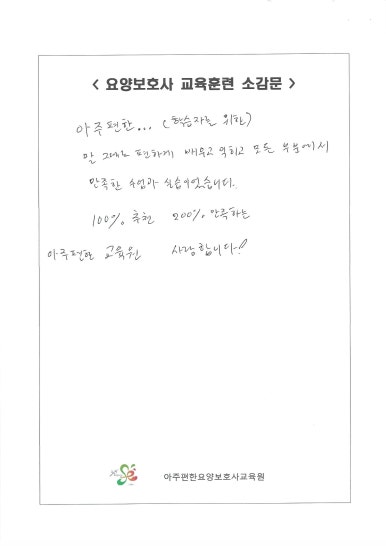 < 요양보호사 교육훈련 소감문 >
아주편한... (학습자를 위한)
말 그대로 편하게 배우고 익히고 모든 부분에서
만족한 수업과 실습이었습니다.
100% 추천 200% 만족하는
아주편한 교육원 사랑합니다!
아주편한요양보호사교육원